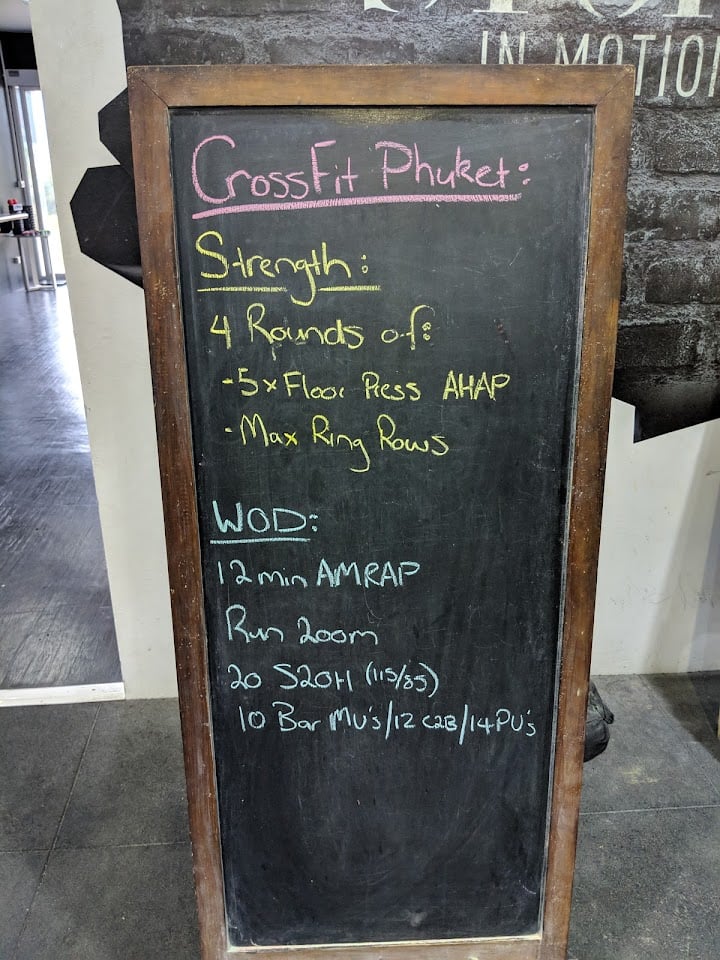 IN MOTION
CrossFit Phuket:
Strength:
4 Rounds of:
-5x Floor Press AHAP
-Max Ring Rows
WOD:
12 min AMRAP
Run 200m
20 S2OH (115/85)
10 Bar MU's/12 C2B/14 PU's